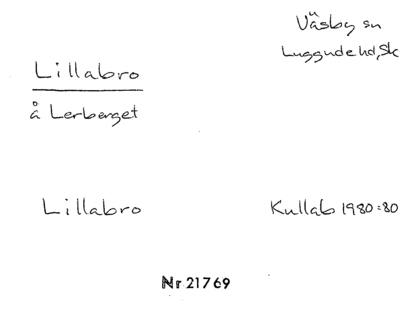 Väsby sn
Luggude hd, Sk
Lillabro
å Lerberget
Lillabro
Kullab 1980:80
Nr 21769